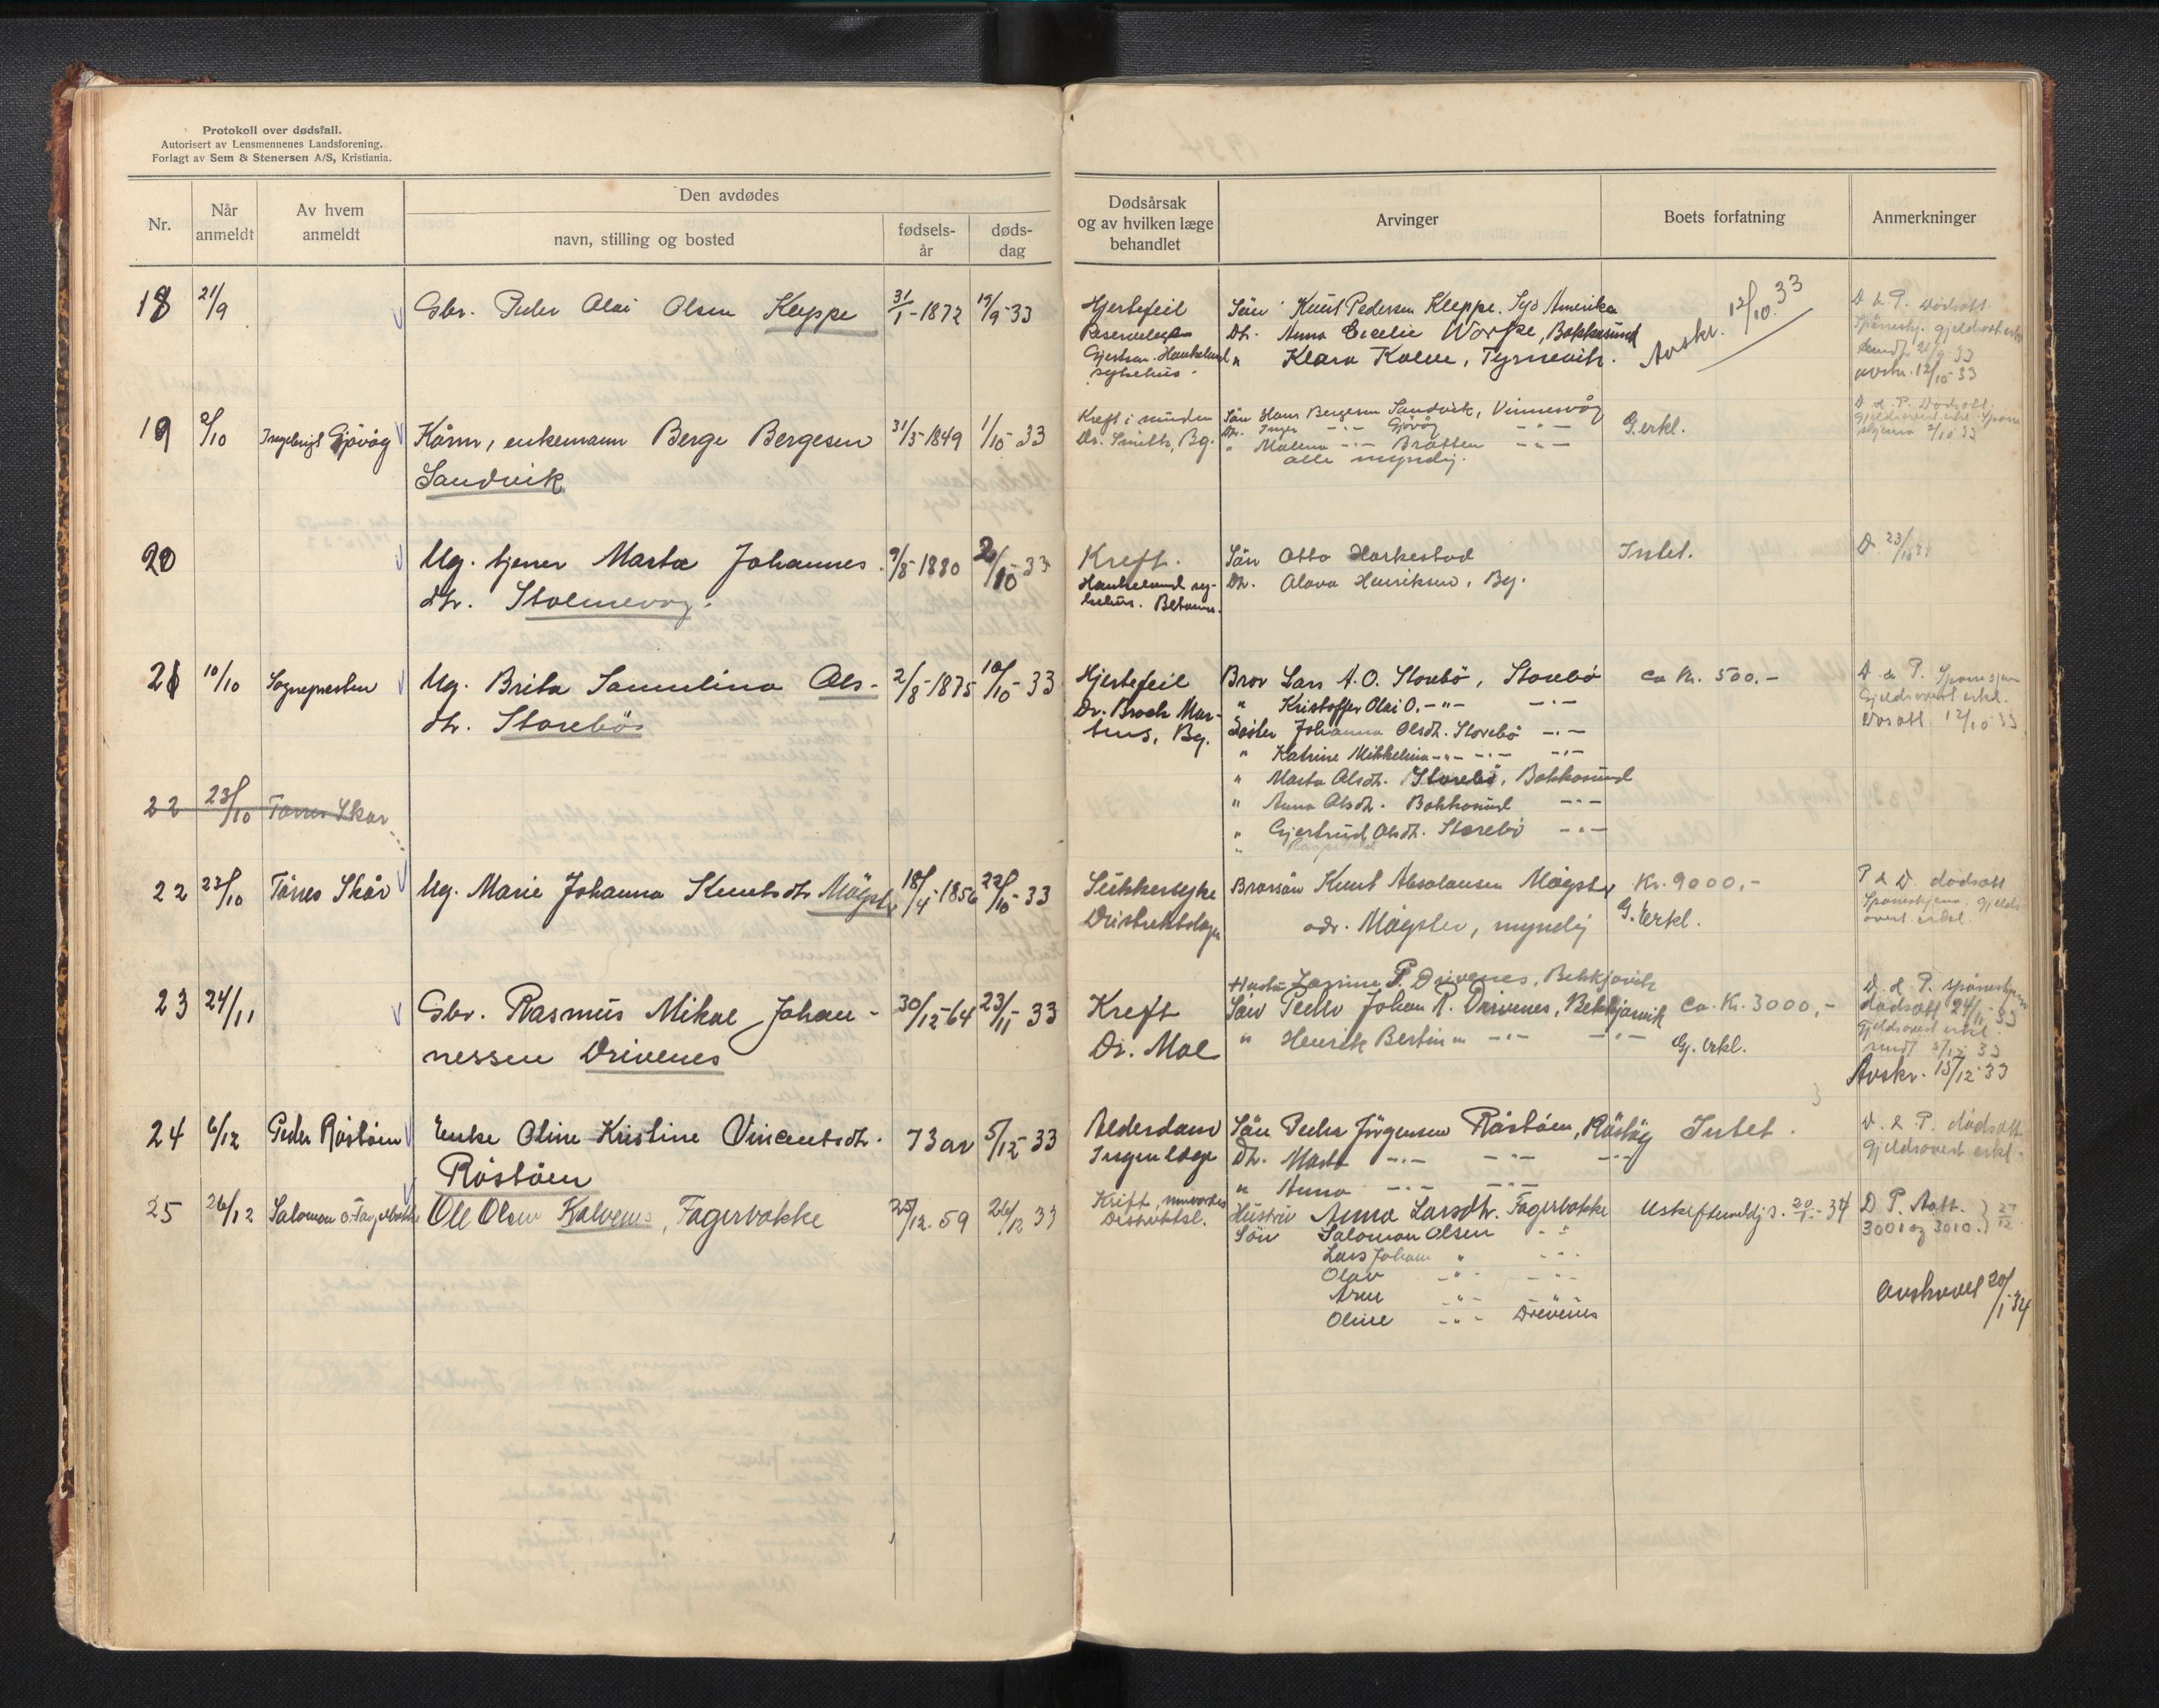 Protokoll over dødsfall.
Autorisert av Lensmennenes Landsforening.
Forlagt av Sem & Stenersen A/S, Kristiania.
Nr.
Når anmeldt
Av hvem anmeldt
Den avdødes
navn, stilling og bosted
fødsels-år
døds-dag
Dødsårsak og av hvilken læge behandlet
Arvinger
Boets forfatning
Anmerkninger
18 21/9 Gbr. Peder Olai Olsen Kleppe 31/1-1872 19/9-33
Hjertefeil Sön Knut Pedersen Kleppe, Syd Amerika
Dtr. Anna Cecelie Bakkasund
Haukeland sykehus. " Klara Kolve,
Avskr. 12/10.33
D & P. Dödsatt.
gjeldsovert erkl.
sendt 21/9-33
avskr. 12/10-33
19 2/10 Ingebrigt Gjövåg Kårm, enkemann Berge Bergesen 31/5-1849 1/10-33
Sandvik
Kreft i Sön Hans Bergesen Sandvik, Vinnesvåg G.erkl.
Dr. Smith, Bg. Dtr. Inger -"- Gjövåg -"-
" Malena -"- Bratten -"-
alle myndig.
D. & P. Dödsatt.
2/10 33
20 Ug. tjener Marta Johannes- 9/8-1880 2/10-33
dtr. Stolmevåg.
Kreft. Sön Otto Harkestad Intet. D. 23/10 33
Haukeland sy- Dtr. Olava Henriksen, Bg.
kehus.
21 10/10 Sognepresten Ug. Brita Samuline Ols- 2/8-1875 10/10-33
dtr. Storebö
Hjertefeil Bror Lars A. O. Storebö, Storebö ca Kr. 500.-
Dr. Broch Mar- " Kristoffer Olai O. -"- -"-
tens, Bg. Söster Johanna Olsdtr. Storebö -"-
" Katrine Mikkelina -"- -"- -"-
" Marta Olsdtr. Storebö, Bakkasund
" Anna Olsdtr. Bakkasund -"-
" Gjertrud Olsdtr. Storebö -"-
D & P.
Gjeldsovert erkl.
12/10-33
22 23/10 Törres Skår
22 23/10 Törres Skår Ug. Marie Johanna Knutsdtr Mögster 18/4-1856 22/10-33
Sukkersyke Brorsön Knut Absalonsen Mögster Kr. 9000,-
Distriktslege adr. Mögster, myndig G. Erkl.
P & D. dödsatt
gjelds
overt erkl.
23 24/11 Gbr. Rasmus Mikal Johan- 30/12-64 23/11-33
nessen Drivenes
Hustru P. Drivenes, Bekkjarvik
Kreft Sön Peder Johan R. Drivenes, Bekkjarvik ca. Kr. 3000,-
Dr. Moe " Henrik Bertin " -"- -"- Gj. Erkl.
D. & P.
dödsatt 24/11-33
Gjeldsovert erkl.
Avskr. 15/12-33
24 6/12 Peder Röstöen Enke Oline Kristine Vincentsdtr. 73 år 5/12-33
Röstöen
Alderdom Sön Peder Jörgensen Röstöen, Intet.
Ingen læge Dtr. Marta -"- -"- -"-
" Anna -"- -"-
D. & P. dödsatt.
Gjeldsovert erkl.
25 26/12 Salomon O. Fagerbakke Ole Olsen Kalvenes, Fagerbakke 25/12. 59 26/12 33
Kreft, Hustru Anna Larsdtr. Fagerbakke Uskiftemeldg s. 20/1-34
Distriktsl. Sön Salomon Olsen -"-
Lars Johan " -"-
Olav -"- -"-
Arne -"- -"-
Oline -"- Drivenes
D. P. 27/12
3001 og 3010.
avskrevet 20/1-34